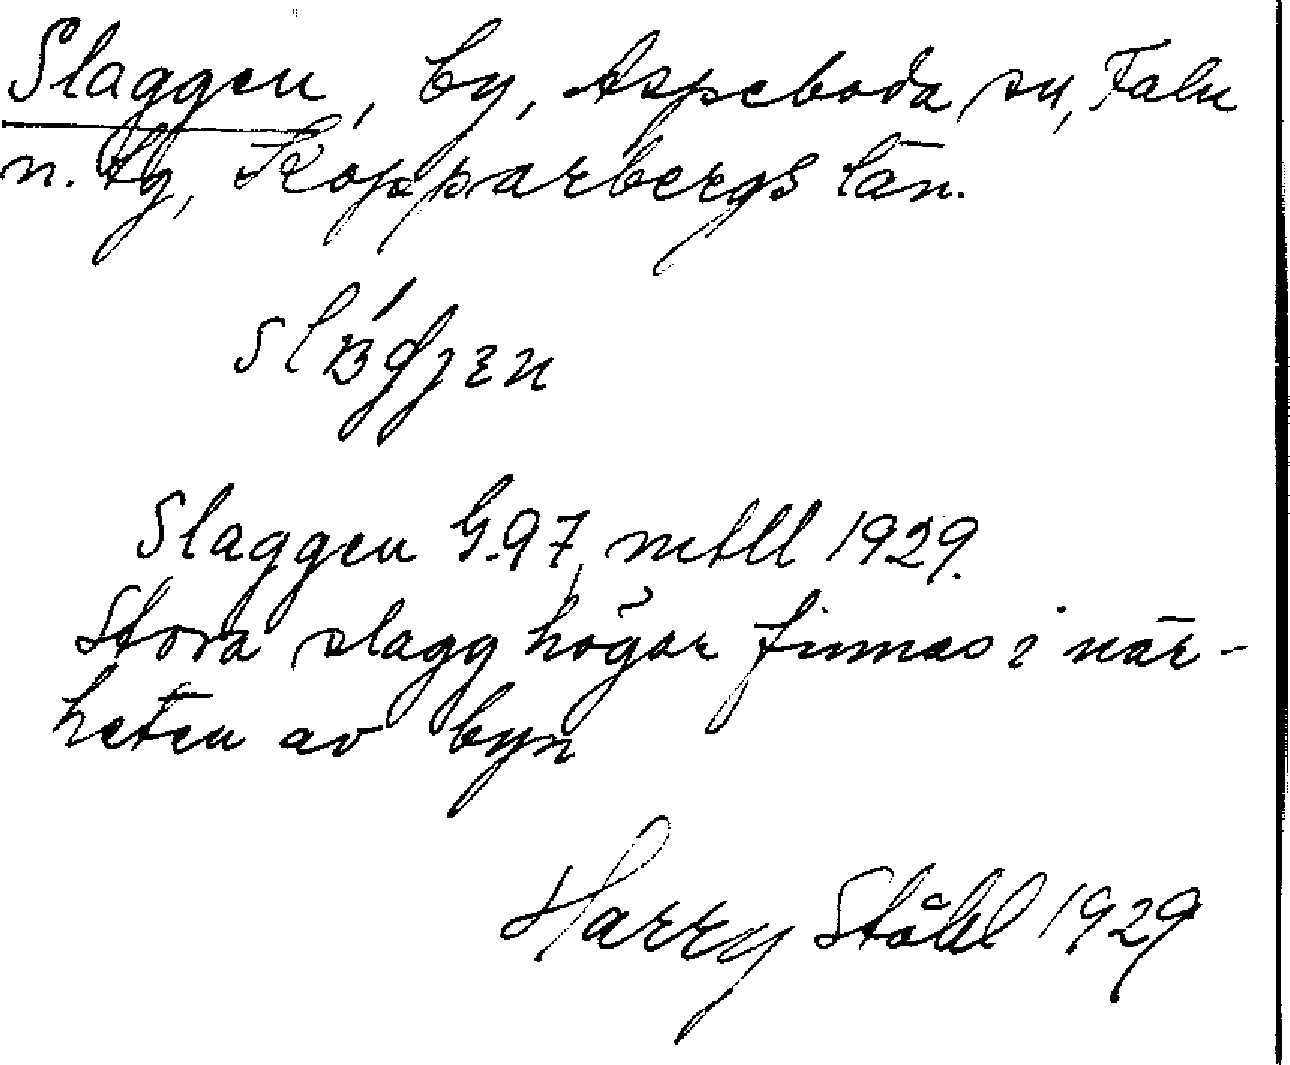 Slaggen, by, Aspeboda sn, Falu
n. tg, Kopparbergs län.
Slaggen G.97, mtll 1929.
Stora slagg högar finnas i när-
heten av byn
Harry Ståhl 1929